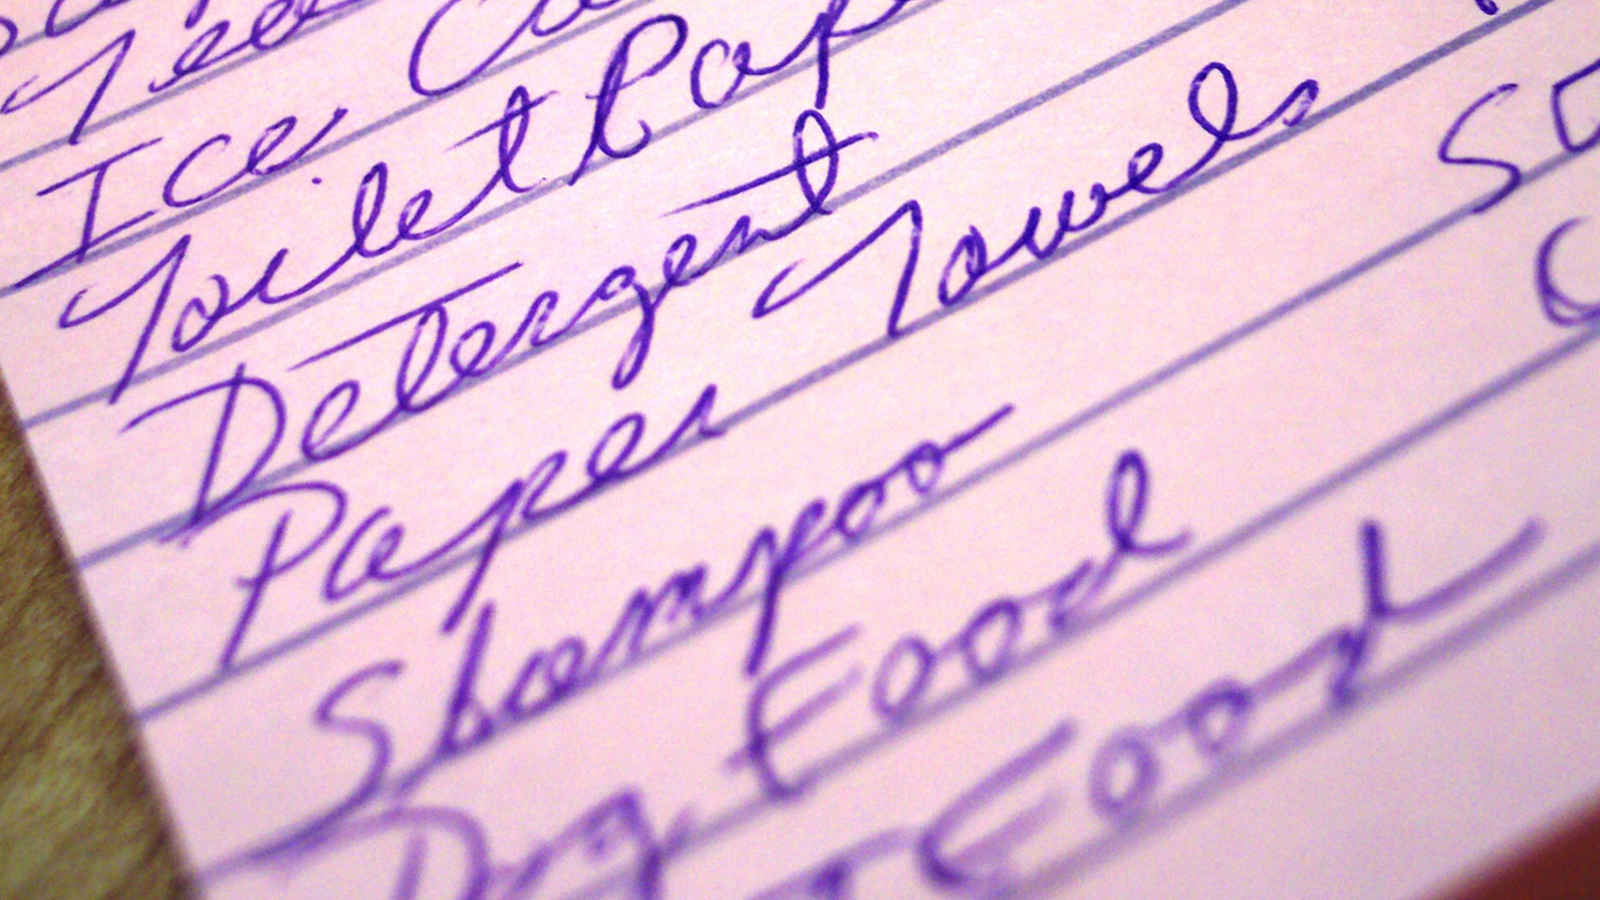 Tea
Ice
Toilet Pap
Detergent
Paper Towels
Shampoo
Dog Food
Food